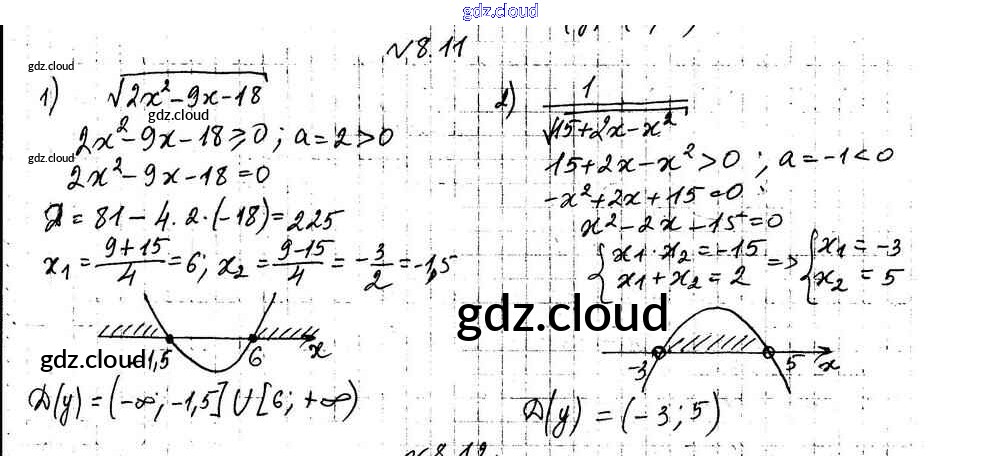 gdz.cloud
№ 8.11
gdz.cloud
1) √(2x² - 9x - 18)
gdz.cloud
2x² - 9x - 18 ≥ 0; a = 2 > 0
gdz.cloud
2x² - 9x - 18 = 0
Д = 81 - 4·2·(-18) = 225
x₁ = (9+15)/4 = 6; x₂ = (9-15)/4 = -3/2 = -1,5
gdz.cloud
-1,5 6 x
D(y) = (-∞; -1,5] ∪ [6; +∞)
2) 1/√(15 + 2x - x²)
15 + 2x - x² > 0; a = -1 < 0
-x² + 2x + 15 = 0
x² - 2x - 15 = 0
{ x₁·x₂ = -15 => { x₁ = -3
x₁ + x₂ = 2 x₂ = 5
gdz.cloud
-3 5 x
D(y) = (-3; 5)